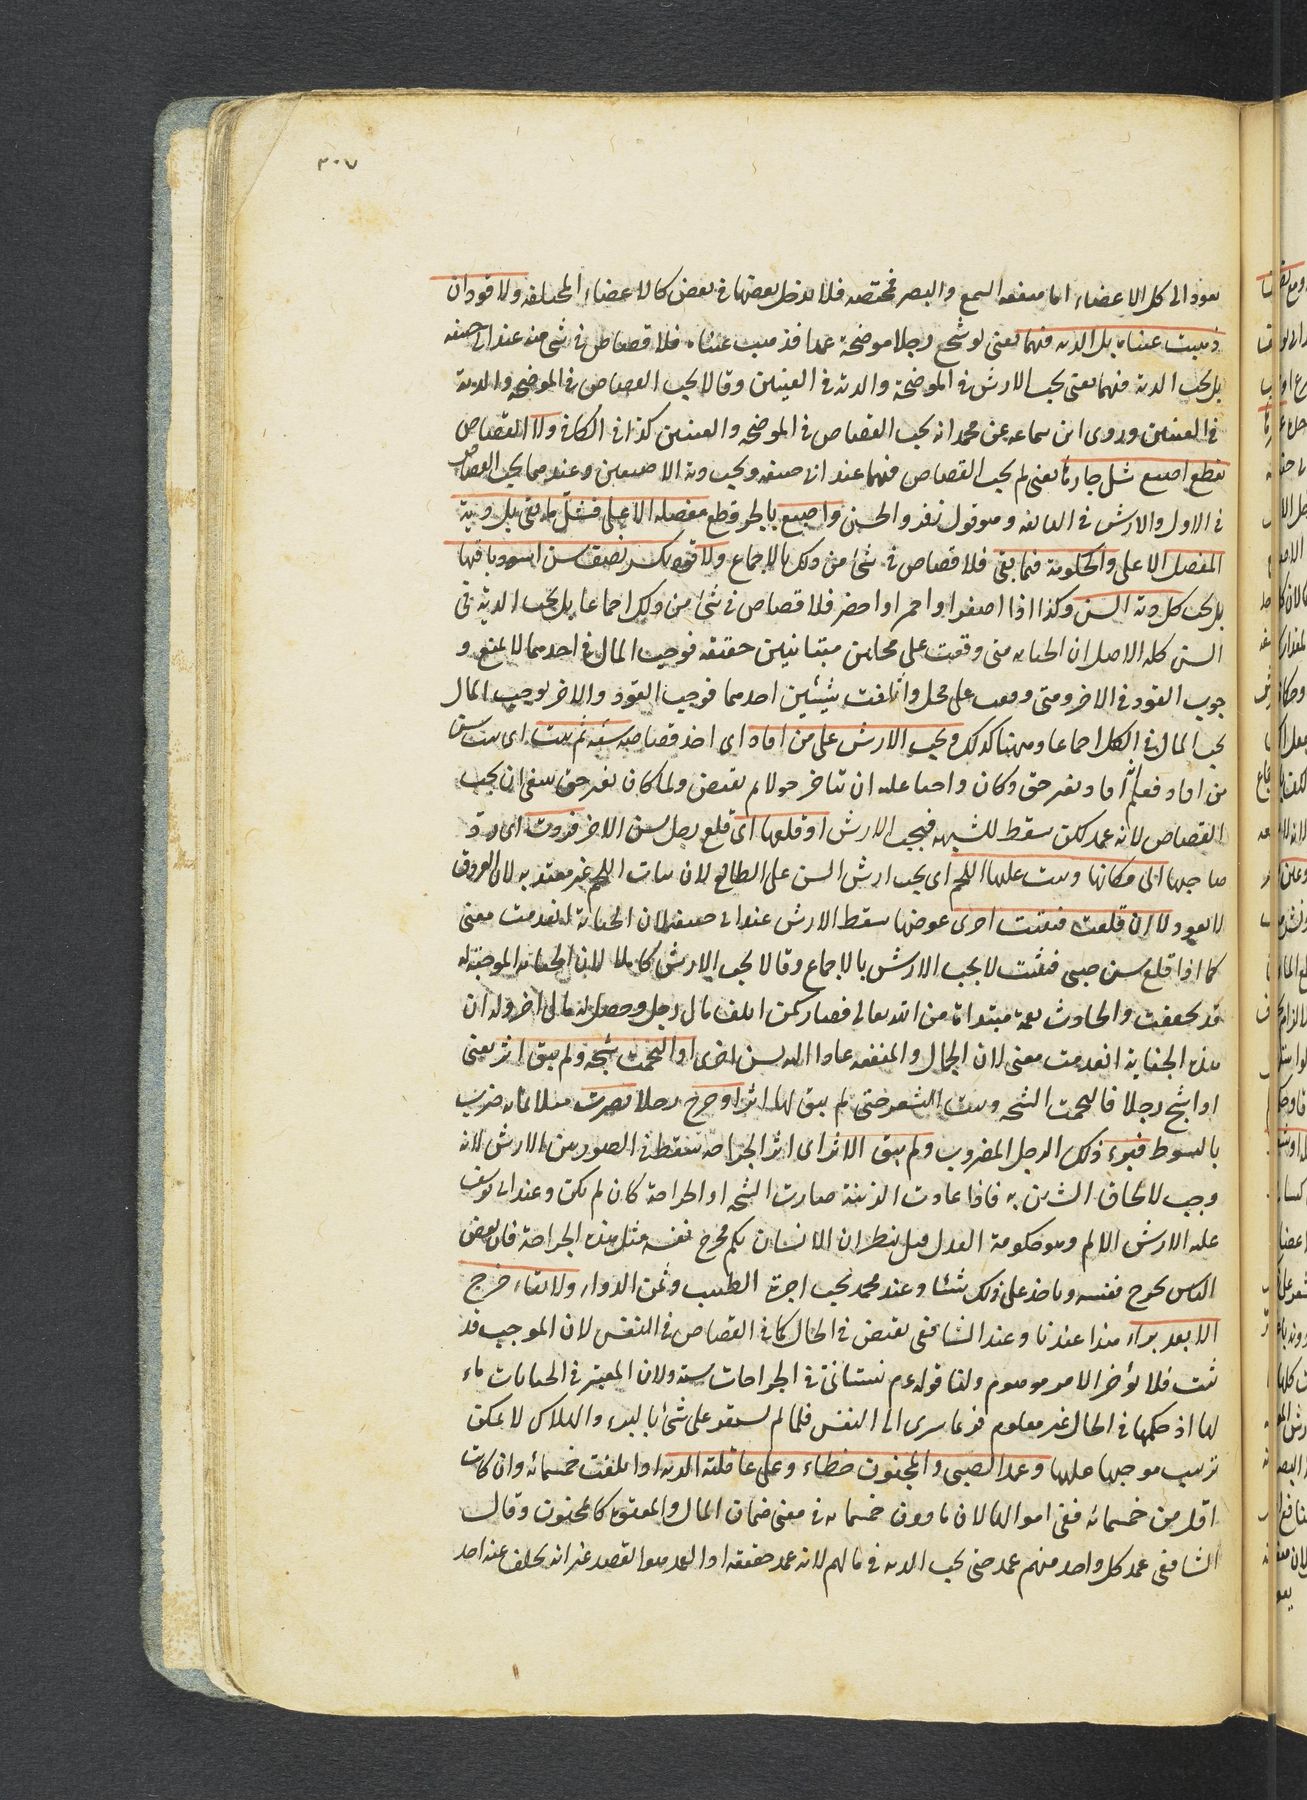 ٣٠٧
يعود الى كل الاعضاء اما منفعه السمع والبصر فمختصه فلا يدخل بعضها فى بعض كالاعضاء المختلفه ولا قود ان
ذهبت عيناه بل الديه فيهما يعنى لو شج رجلا موضحة عمدا فذهبت عيناه فلا قصاص فى شئ منه عند ابى حنيفه
بل يجب الدية فيهما يعنى يجب الارش فى الموضحة والدية فى العينين وقالا يجب القصاص فى الموضحه والدية
فى العينين وروى ابن سماعه عن محمد انه يجب القصاص فى الموضحه والعينين كذا فى الكافى ولا القصاص
بقطع اصبع شل جاره يعنى لم يجب القصاص فيهما عند ابى حنيفه ويجب دية الاصبعين وعندهما يجب القصاص
فى الاول والارش فى الثانيه وهو قول زفر والحسن واصبع بالجر قطع مفصله الاعلى فشل ما بقى بل دية
المفصل الاعلى والحكومة فيما بقى فلا قصاص فى شئ من ذلك بالاجماع ولا قود بكسر نصف سن اسود باقيها
بل يجب كل دية السن وكذا اذا اصفر او احمر او اخضر فلا قصاص فى شئ من ذلك اجماعا بل يجب الدية فى
السن كله الاصل ان الجنايه متى وقعت على محلين متباينين حقيقه فوجوب المال فى احدهما لا يمنع و
جوب القود فى الاخر ومتى وقعت على محل واتلفت شيئين احدهما فوجب القود والاخر يوجب المال
يجب المال فى الكل اجماعا وههنا كذلك ويجب الارش على من اقاد اى اخذ قصاصه سنه ثم نبت اى نبت سن
من اقاد فعلم انه اقاد بغير حق وكان واجبا عليه ان يتاخر حولا ثم يقتص ولما كان بغير حق ينبغى ان يجب
القصاص لانه عمد لكن سقط للشبهه فيجب الارش او قلعها اى قلع رجل سن الاخر فردت اى رد
صاحبها الى مكانها ونبت عليها اللحم اى يجب ارش السن على القالع لان نبات اللحم غير معتد به لان العروق
لا يعود لا ان قلعت فنبتت اخرى عوضها سقط الارش عند ابى حنيفه لان الجناية انعدمت معنى
كما اذا قلع سن صبى فنبتت لا يجب الارش بالاجماع وقالا يجب الارش كاملا لان الجنايه الموجبة له
قد تحققت والحادث نعمة مبتداة من الله تعالى فصار كمن اتلف مال رجل وحصل له مال اخر وله ان
هذه الجناية انعدمت معنى لان الجمال والمنفعه عادا اليه بسن اخرى او التحمت شجه ولم يبق اثر يعنى
اذا شج رجلا فالتحمت الشجه ونبت الشعر حتى لم يبق لها اثر او جرح رجلا بضرب مثلا بان ضرب
بالسوط فبرء ذلك الرجل المضروب ولم يبق الاثر اى اثر الجراحه يسقط فى الصورتين الارش لانه
وجب لالحاق الشين به فاذا عادت الزينة صارت الشجه او الجراحة كان لم تكن وعند ابى يوسف
عليه الارش الالم وهو حكومة العدل قيل ينظر ان الانسان بكم يجرح نفسه مثل هذه الجراحة فان بعض
الناس يجرح نفسه وياخذ على ذلك شيئا وعند محمد يجب اجرة الطبيب وثمن الدواء ولا يقاد جرح
الا بعد برء هذا عندنا وعند الشافعى يقتص فى الحال كما فى القصاص فى النفس لان الموجب قد
ثبت فلا يؤخر الامر موهوم ولنا قوله عم يستانى فى الجراحات سنه ولان المعتبر فى الجنايات ماء
لها اذ حكمها فى الحال غير معلوم فربما سرى الى النفس فلما لم يستقر على شئ بالبرء والهلاك لا يمكن
ترتيب موجبها عليها وعمد الصبى والمجنون خطاء وعلى عاقلته الديه اذا بلغت خمسمائه وان كانت
اقل من خمسمائه ففى اموالهما لان ما دون خمسمايه فى معنى ضمان المال والمعتوه كالمجنون وقال
الشافعى عمد كل واحد منهم عمد حتى يجب الديه فى مالهم لانه عمد حقيقه اذ العمد هو القصد غير انه تخلف عنه احد